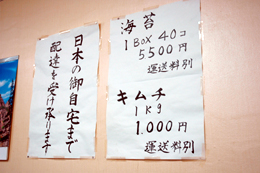 日本の御自宅まで
配達を受け承ります
海苔
1 Box 40コ
5500円
運送料別
キムチ
1Kg
1.000円
運送料別